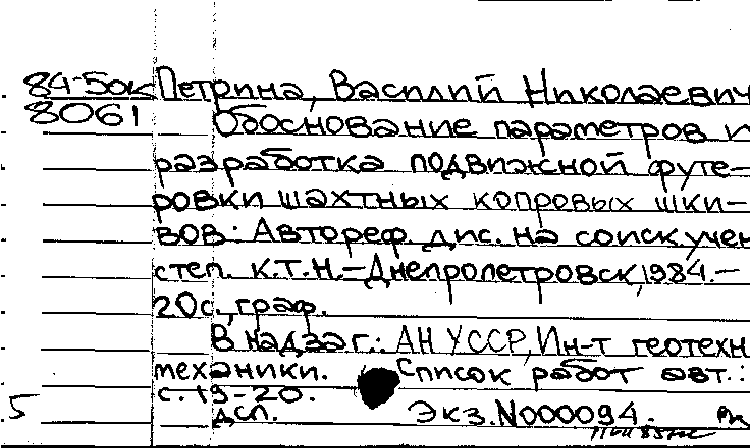 84-50к Петрина, Василий Николаевич
8061 Обоснование параметров и
разработка подвижной футе-
ровки шахтных копровых шки-
вов: Автореф. дис. на соиск. учен
степ. к.т.н.-Днепропетровск, 1984.-
20с., граф.
В надзаг.: АН УССР, Ин-т геотехн
механики. Список работ авт.:
с. 19-20.
5 дсп. Экз. N000094.